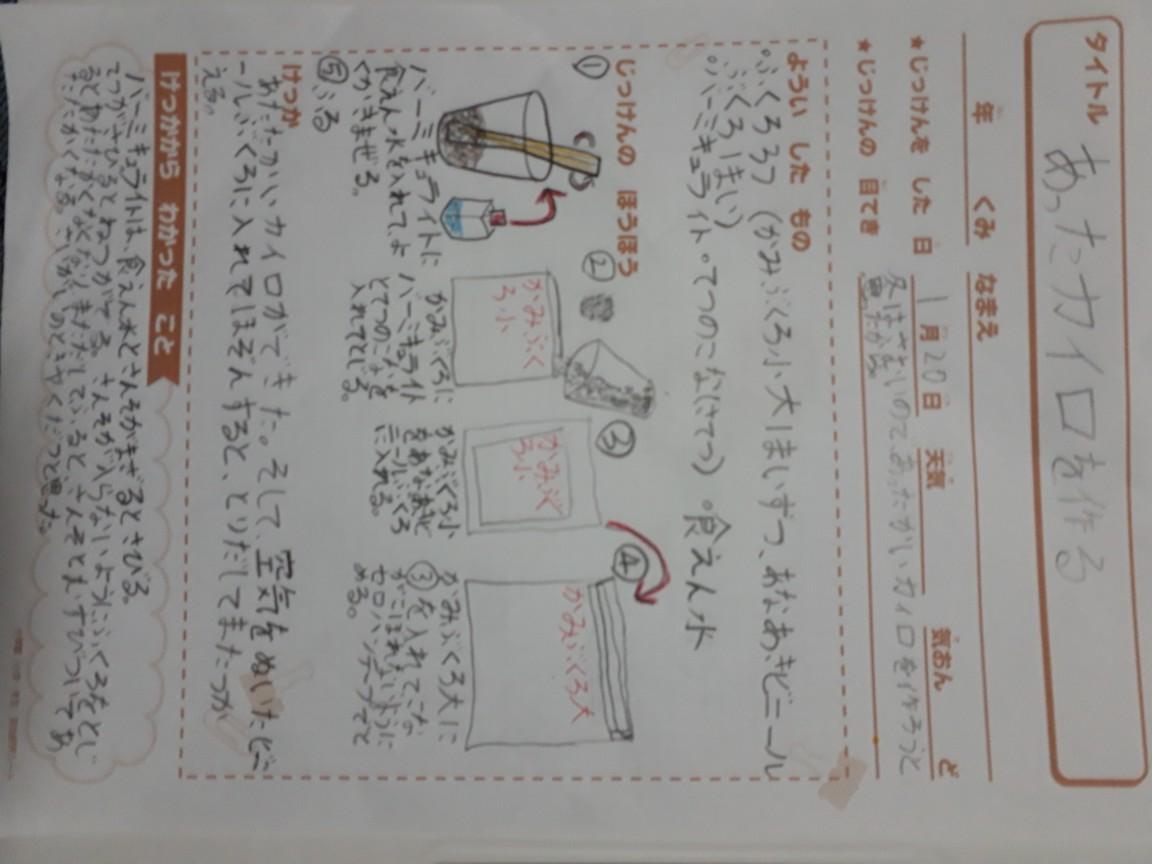 タイトル
あったカイロを作る
年 くみ なまえ
★じっけんを した 日 1月20日 天気 気おん ど
★じっけんの 目てき 冬はさむいのであったかいカイロを作ろうと
思ったから。
ようい した もの
・ふくろ3つ(かみぶくろ小大1まいずつ、あなあきビニール
ぶくろ1まい)
・バーミキュライト・てつのこな(さてつ)・食えん水
じっけんの ほうほう
①
バーミキュライトに
食えん水を入れてよ
くかきまぜる。
②
かみぶく
ろ小
かみぶくろに
バーミキュライト
とてつのこなを
入れてとじる。
③
かみぶく
ろ小
かみぶくろ小
をあなあきビ
ニールぶくろ
に入れる。
④
かみぶくろ大
かみぶくろ大に
③を入れてこな
がこぼれないように
セロハンテープでと
める。
⑤ふる
けっか
あたたかいカイロができた。そして、空気をぬいたビニ
ールぶくろに入れてほぞんすると、とりだしてまたつか
える。
けっかから わかった こと
バーミキュライトは、食えん水とさんそがまざるとさびる。
てつがさびるとねつがでる。さんそが入らないようにふくろをとじ
るとあたたかくなくなる。まただしてふると、さんそとむすびついてあ
たたかくなる。